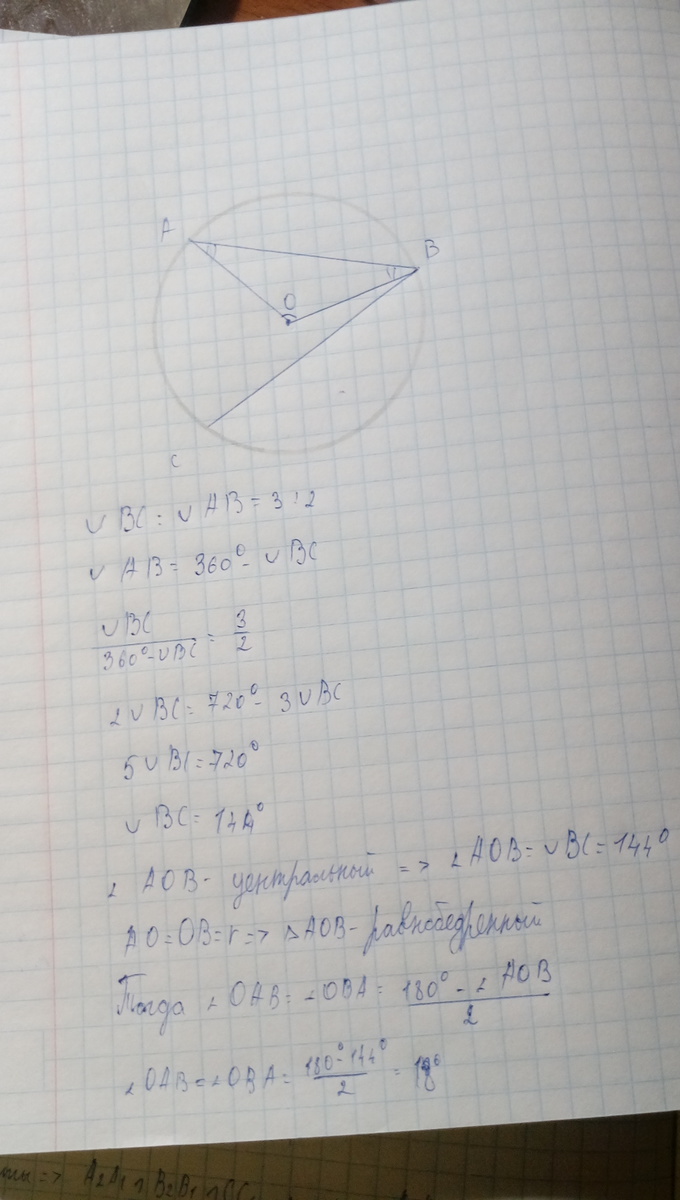 A
B
O
C
∪ BC : ∪ AB = 3 : 2
∪ AB = 360° - ∪ BC
∪BC / 360°-∪BC = 3/2
2∪BC = 720° - 3∪BC
5∪BC = 720°
∪ BC = 144°
∠ AOB - центральный => ∠AOB = ∪BC = 144°
AO = OB = r => △AOB - равнобедренный
Тогда ∠OAB = ∠OBA = 180° - ∠AOB / 2
∠OAB = ∠OBA = 180°-144° / 2 = 18°
=> A₂A₁ ∩ B₂B₁ ∩ CC₁